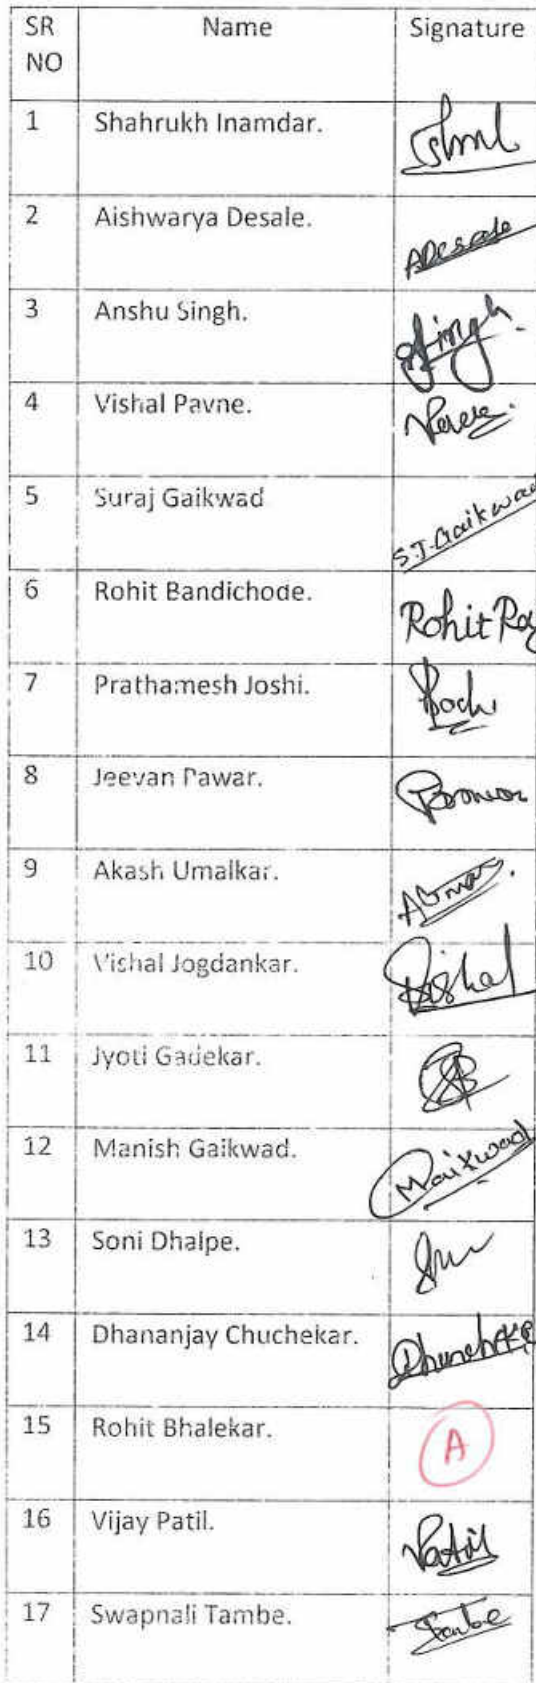 SR NO Name Signature
1 Shahrukh Inamdar.
2 Aishwarya Desale. ADesale
3 Anshu Singh. Singh.
4 Vishal Pavne.
5 Suraj Gaikwad S.J.Gaikwad
6 Rohit Bandichode. Rohit Raj
7 Prathamesh Joshi.
8 Jeevan Pawar.
9 Akash Umalkar.
10 Vishal Jogdankar. Vishal
11 Jyoti Gadekar.
12 Manish Gaikwad.
13 Soni Dhalpe.
14 Dhananjay Chuchekar.
15 Rohit Bhalekar. A
16 Vijay Patil. Patil
17 Swapnali Tambe. Tambe